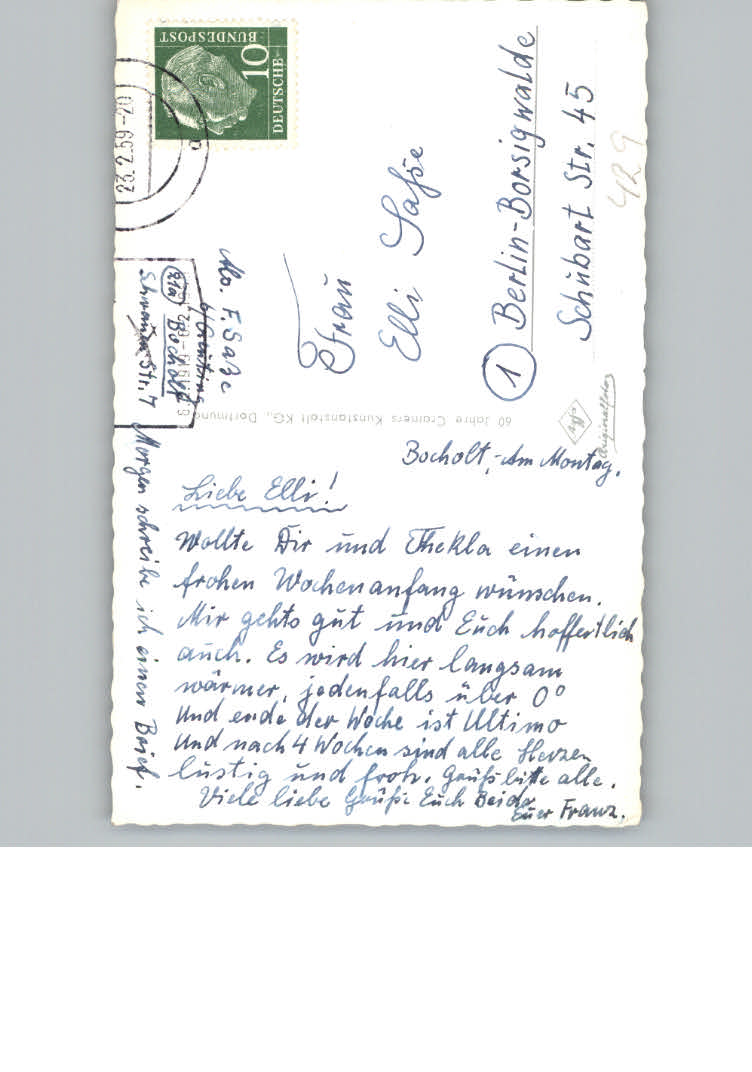 Bocholt, Am Montag.
Liebe Elli!
Wollte Dir und Thekla einen
frohen Wochenanfang wünschen.
Mir gehts gut und Euch hoffentlich
auch. Es wird hier langsam
wärmer, jedenfalls über 0°
Und ende der Woche ist Ultimo
Und nach 4 Wochen sind alle Herzen
lustig und froh. Grüß bitte alle.
Viele liebe Grüße Euch Beide
Euer Franz.
Morgen schreibe ich einen Brief.
Frau
Elli Saße
1 Berlin-Borsigwalde
Schubart Str. 45
429
Abs. F. Saße
21a Bocholt
Str. 7
DEUTSCHE
BUNDESPOST
10
23.2.59-20
a
60 Jahre Crainers Kunstanstalt KG., Dortmund
Agfa
Originalfoto